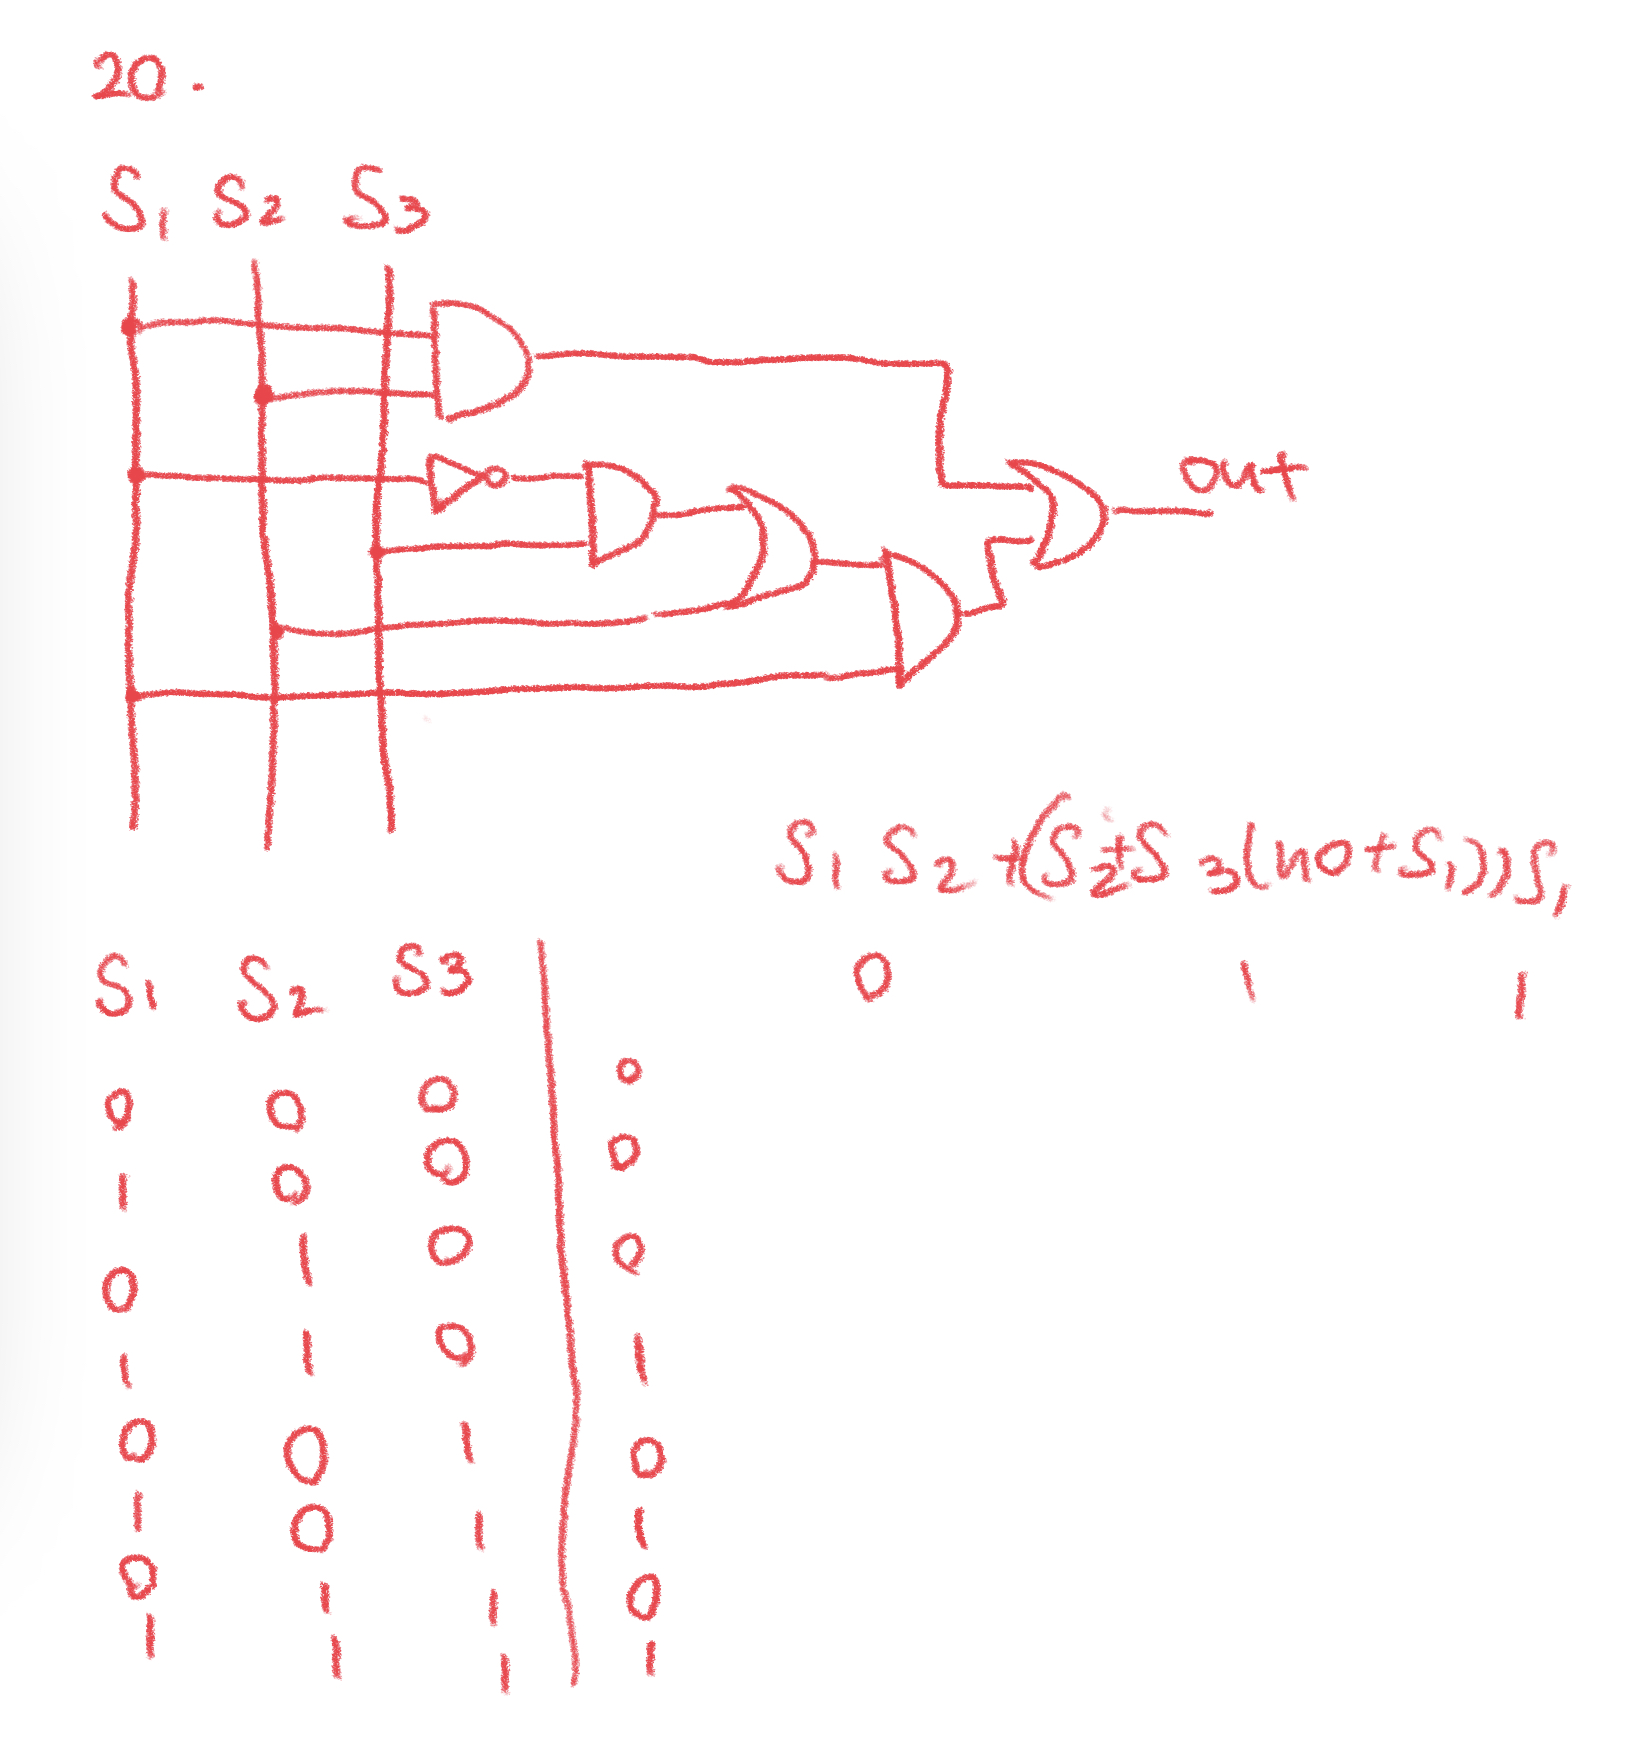 20.
S1 S2 S3
out
S1 S2 + (S2 + S3 (not S1)) S1
0 1 1
S1 S2 S3
0 0 0 0
1 0 0 0
0 1 0 0
1 1 0 1
0 0 1 0
1 0 1 1
0 1 1 0
1 1 1 1